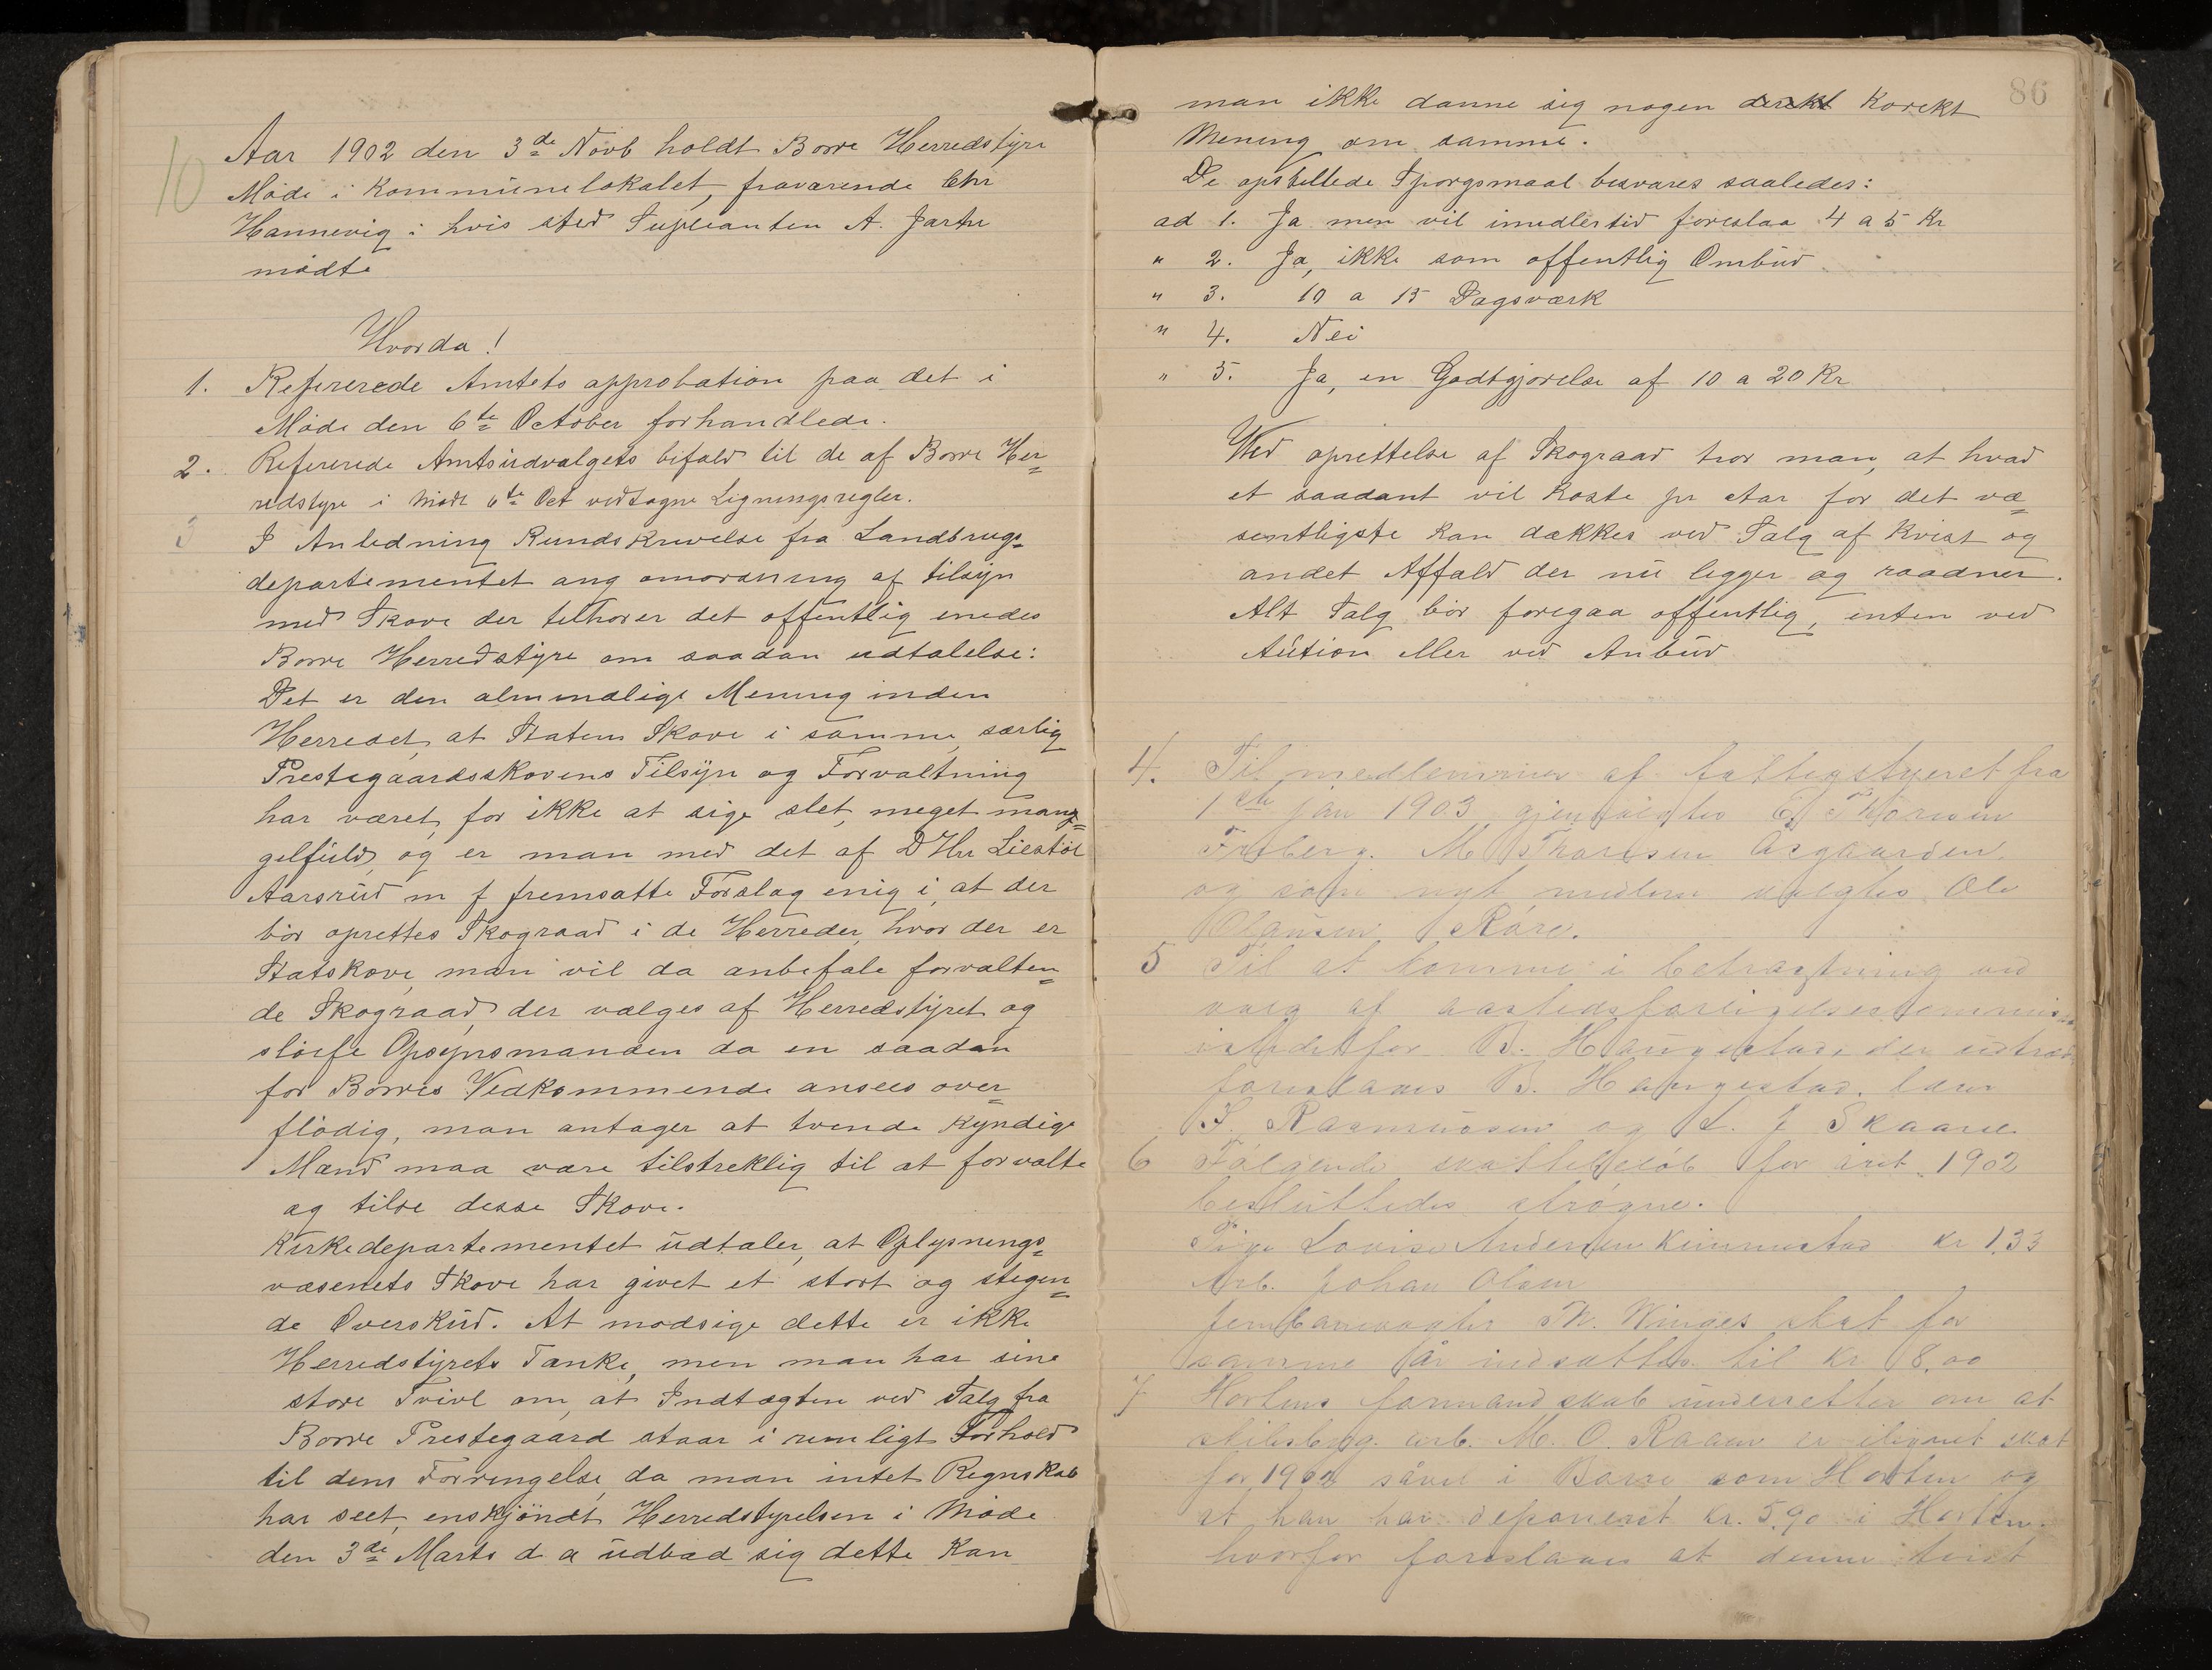 10
Aar 1902 den 3de Novb holdt Borre Herredstyre
Møde i Kommunelokalet, fraværende Chr
Hannevig i hvis sted Supleanten A. Jarhe
mødte
Hvorda!
1. Refererede Amtets approbation paa det i
Møde den 6te October forhandlede.
2. Refererede Amtsudvalgets bifald til de af Borre Her=
redstyre i Møde 6te Oct vedtagne Ligningsregler.
3 I Anledning Rundskrivelse fra Landbrugs=
departementet ang omordning af tilsyn
med Skove der tilhører det offentlig enedes
Borre Herredstyre om saadan udtalelse:
Det er den almindelige Mening inden
Herredet, at Statens Skove i samme, særlig
Prestegaardsskovens Tilsyn og Forvaltning
har været, for ikke at sige slet, meget mang=
gelfuld, og er man med det af D Hrr Liestøl
Aarsrud m f fremsatte Forslag enig i, at der
bør oprettes Skograad i de Herreder, hvor der er
Statskove, man vil da anbefale forvalten=
de Skograad, der vælges af Herredstyret og
sløife Opsynsmanden da en saadan
for Borres Vedkommende ansees over=
flødig, man antager at tvende Kyndige
Mænd maa være tilstreklig til at forvalte
og tilse desse Skove.
Kirkedepartementet udtaler, at Oplysnings=
væsenets Skove har givet et stort og stegen=
de Overskud. At modsige dette er ikke
Herredstyrets Tanke, men man har sine
store Tvivl om, at Indtægten ved Salg fra
Borre Prestegaard staar i rimeligt Forhold
til dens Forringelse, da man intet Regnskab
har seet, enskjøndt Herredstyrelsen i Møde
den 3de Marts d a udbad sig dette Kan
86
man ikke danne sig nogen direkt Korekt
Mening om samme.
De opstillede Spørgsmaal besvares saaledes:
ad 1. Ja men vil imedlertid foreslaa 4 a 5 Kr
" 2. Ja, ikke som offentlig Ombud
" 3. 10 a 15 Dagsværk
" 4. Nei
" 5. Ja, en Godtgjørelse af 10 a 20 Kr
Ved oprettelse af Skograad tror man, at hvad
et saadant vil koste pr Aar for det væ=
sentligste kan dækkes ved Salg af Kvist og
andet Affald der nu ligger og raadner.
Alt Salg bør foregaa offentlig, enten ved
Aution eller ved Anbud
4. Til medlemmer af fattigstyret fra
1ste jan 1903 gjenvalgtes E. Thorsen
Froberg. M. Thoresen Asgaarden.
og som nyt medlem valgtes Ole
Olausen Røre.
5 Til at komme i betragtning ved
valg af aastedsforligelseskommis
istedetfor B. Haugestad, der udtræd
foreslaaes B. Haugestad,
S. Rasmussen og L. J Skaane
6 Følgende skattebeløb for året 1902
besluttedes strøgne.
Pige Lovise Andersen Kimmestad kr 1.33
Arb. Johan Olsen
Jernbanevogter Th. Winges skat for
samme år nedsattes til kr 8.00
7 Hortens formandskab underretter om at
arb. M. O. Raaen er ilignet skat
for 1902 såvel i Borre som Horten og
at han har deponeret kr. 5.90 i Horten.
hvorfor foreslaaes at denne tvist